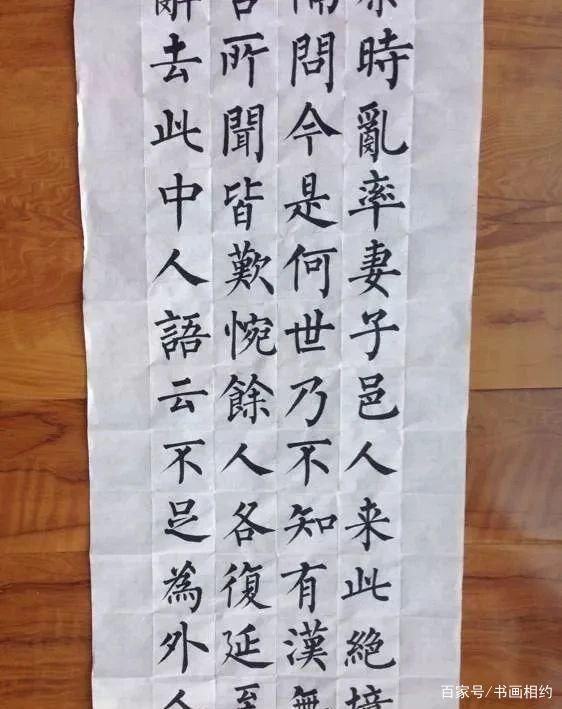 秦時亂率妻子邑人来此絕境
隔問今是何世乃不知有漢無
言所聞皆歎惋餘人各復延至
辭去此中人語云不足為外人
百家号/书画相约